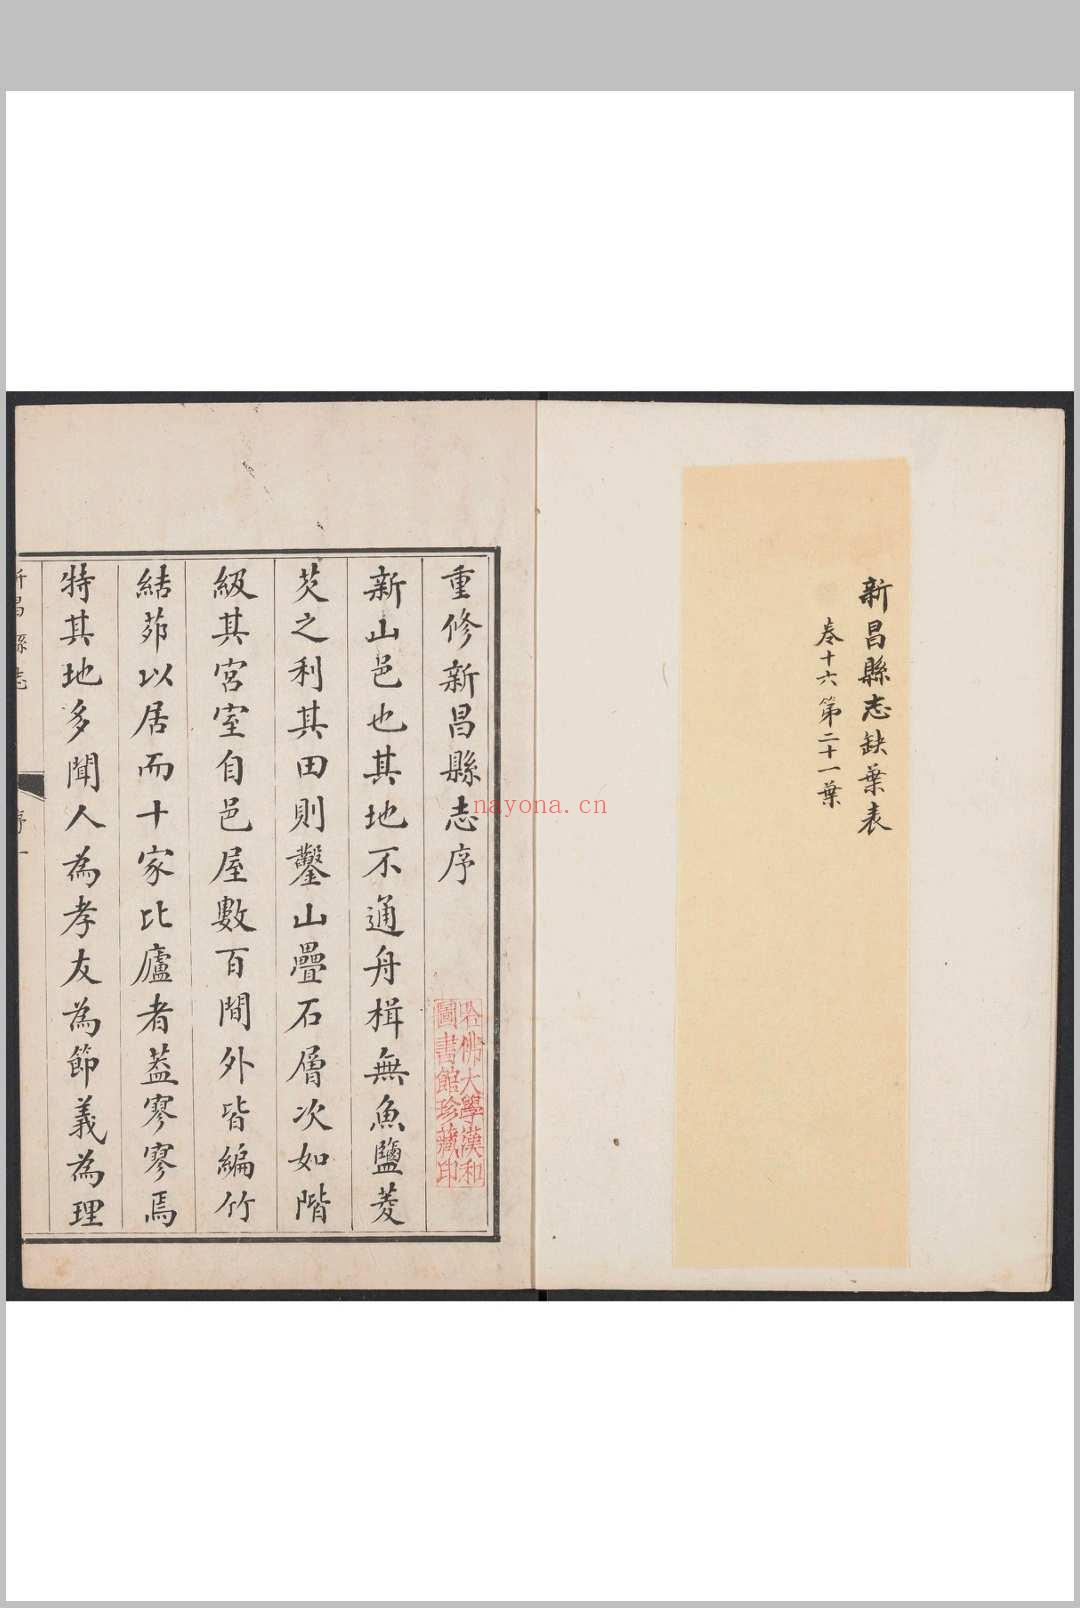 新昌縣志缺葉表
卷十六第二十一葉
重修新昌縣志序
哈佛大學漢和
圖書館珍藏印
新山邑也其地不通舟楫無魚鹽菱
芡之利其田則鑿山疊石層次如階
級其宮室自邑屋數百間外皆編竹
結茆以居而十家比廬者蓋寥寥焉
特其地多聞人為孝友為節義為理
新昌縣志 序 一
nayona.cn